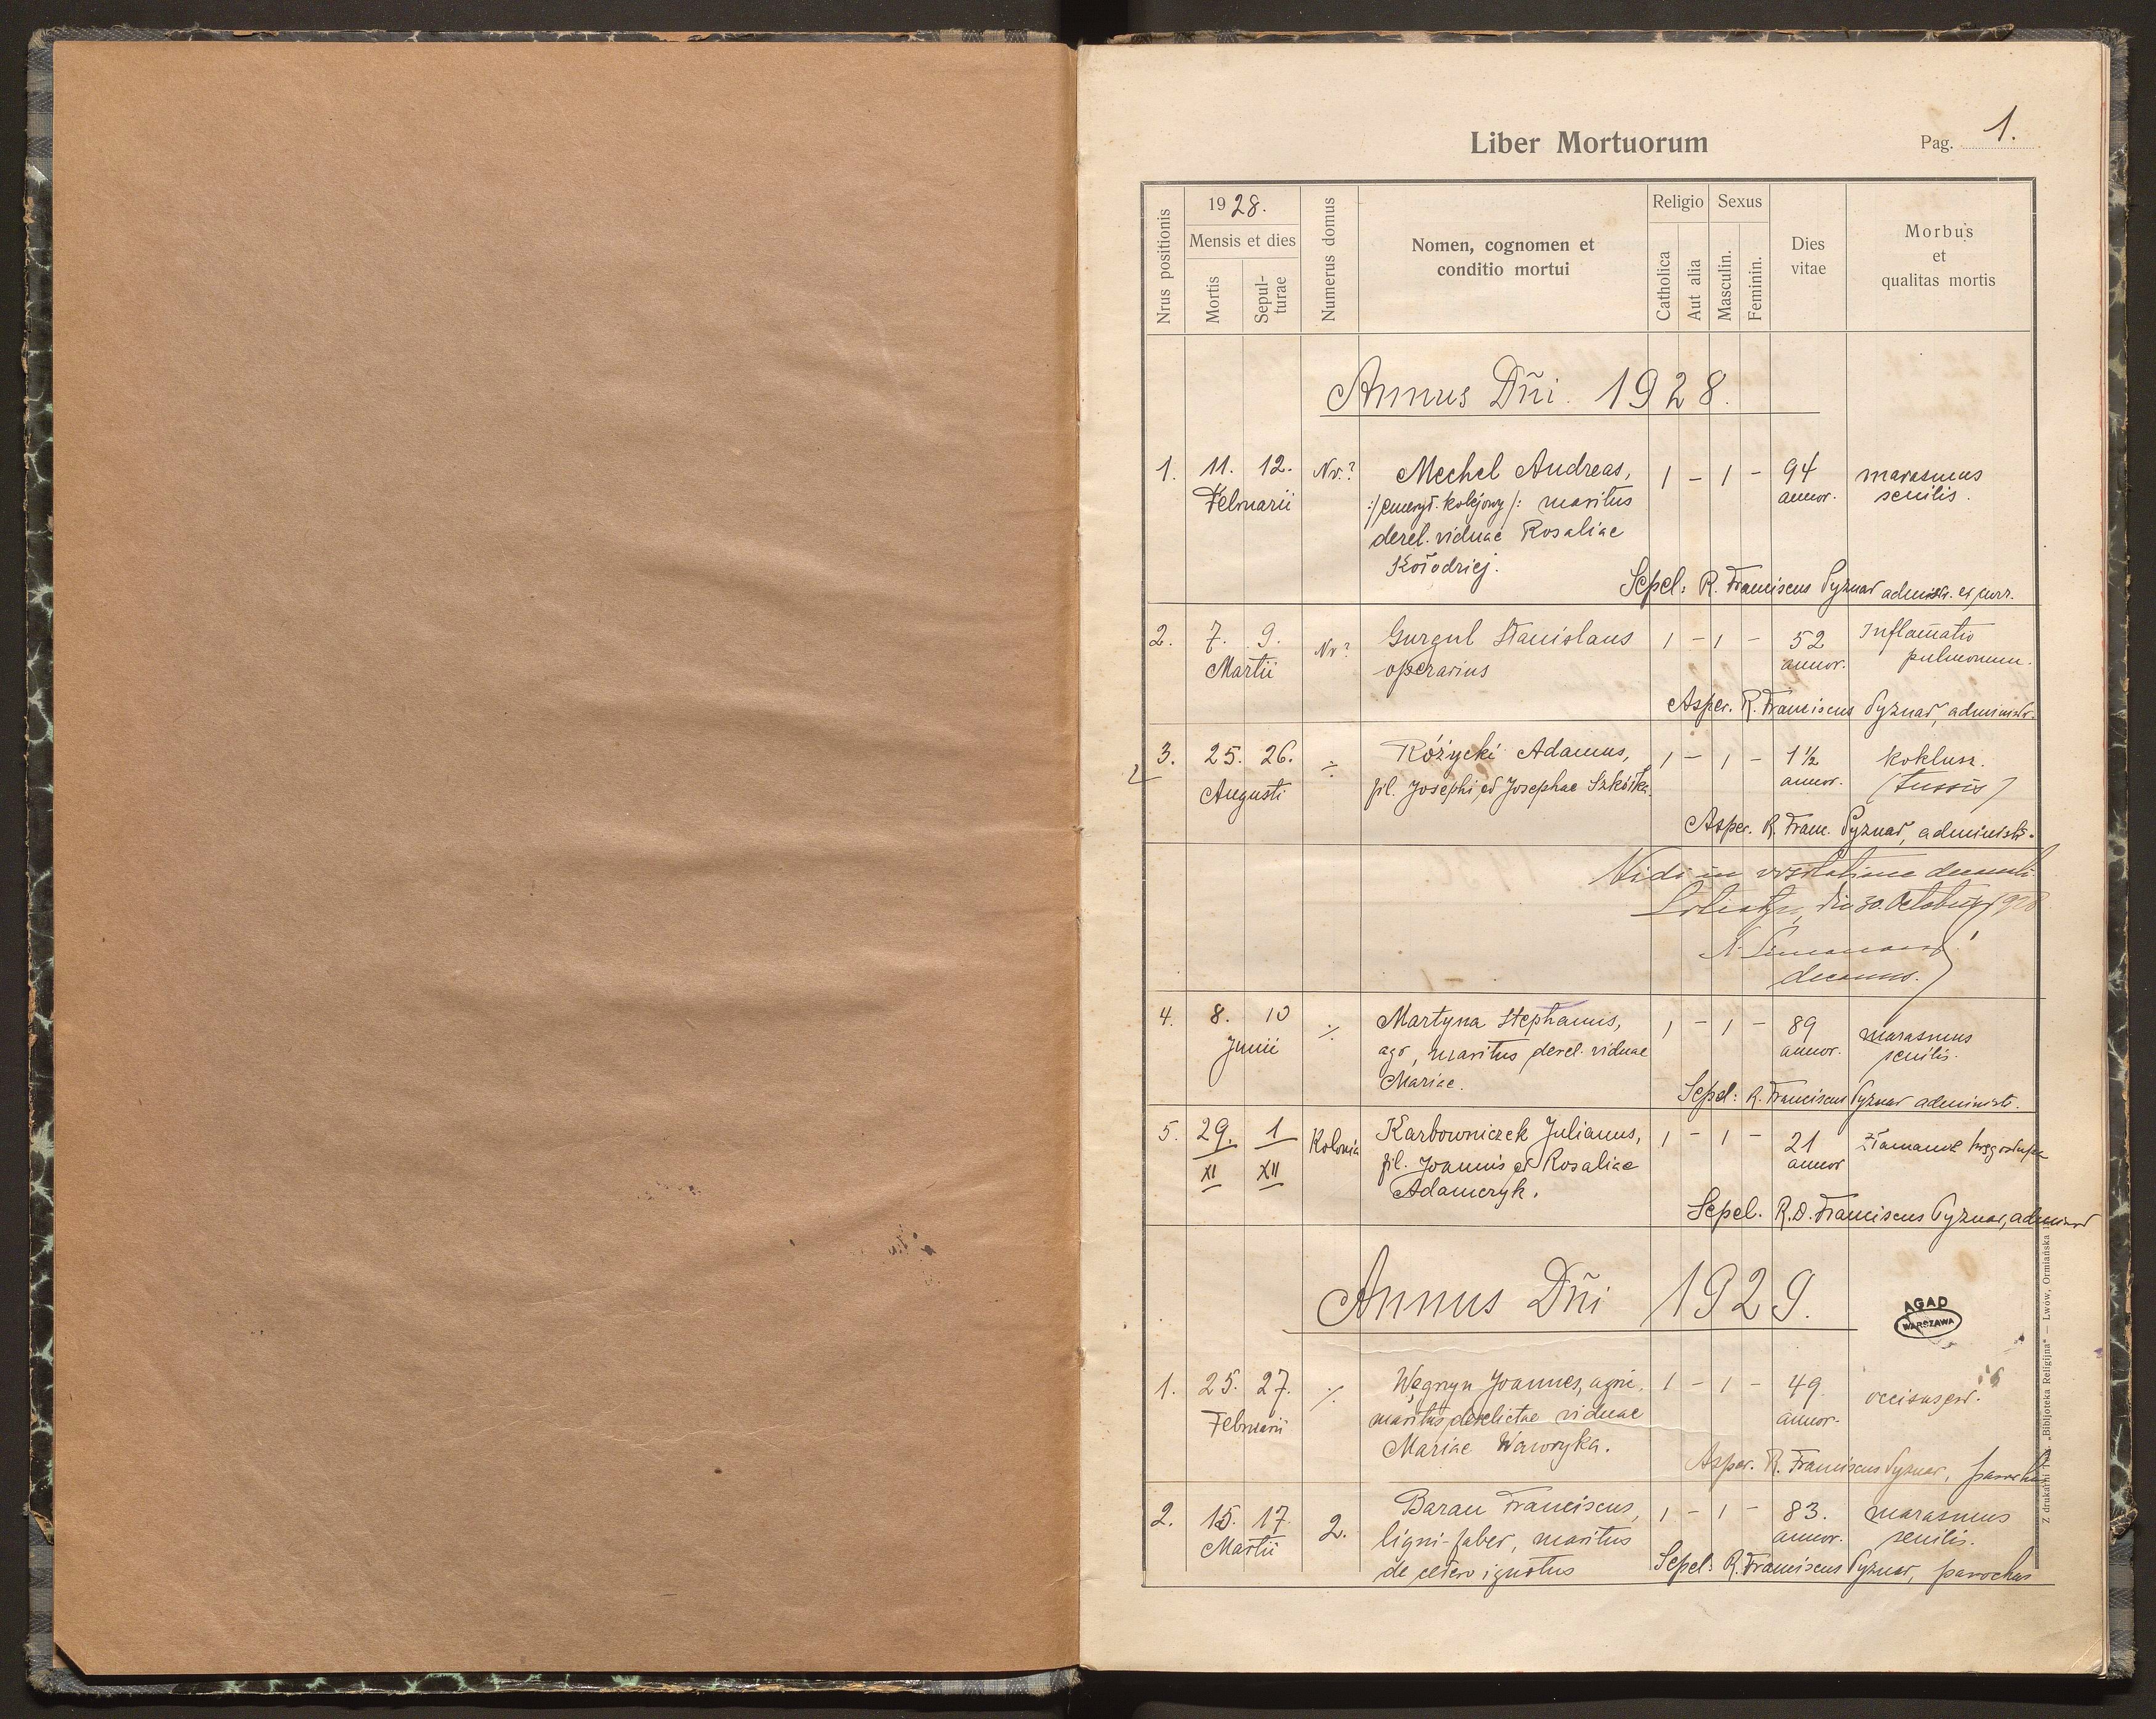 Liber Mortuorum
Pag. 1.
Nrus positionis
1928.
Mensis et dies
Mortis
Sepul-
turae
Numerus domus
Nomen, cognomen et
conditio mortui
Religio
Catholica
Aut alia
Sexus
Masculin.
Feminin.
Dies
vitae
Morbus
et
qualitas mortis
Annus Dñi. 1928.
1. 11. 12. Nr.? Mechel Andreas, 1 - 1 - 94 marasmus
Februarii :/emeryt. kolejowy/: maritus annor. senilis.
derel. viduae Rosaliae
Kołodziej.
Sepel: R. Franciscus Pyznar administr. et curr.
2. 7. 9. Nr? Gurgul Stanislaus 1 - 1 - 52 Inflam̄atio
Martii operarius annor. pulmonum.
Asper. R. Franciscus Pyznar, administr.
3. 25. 26. ÷ Różycki Adamus, 1 - 1 - 1½ koklusz.
Augusti fil. Josephi et Josephae Szkółka annor. (tussis)
Asper. R. Franc. Pyznar, administr.
Vidi in visitatione decanali
die 30. Octobris 1928
decanus.
4. 8. 10 ÷ Martyna Stephanus, 1 - 1 - 89 marasmus
Junii agr., maritus derel. viduae annor. senilis.
Mariae.
Sepel: R. Franciscus Pyznar administr.
5. 29. 1 Kolonia Karbowniczek Julianus, 1 - 1 - 21 złamanie kręgosłupa
XI XII fil. Joannis et Rosaliae annor
Adamczyk.
Sepel. R.D. Franciscus Pyznar, administr
Annus Dñi 1929.
AGAD
WARSZAWA
1. 25. 27. ÷ Węgrzyn Joannes, agri. 1 - 1 - 49 occisus
Februarii maritus derelictae viduae annor.
Mariae Wawryka.
Asper. R. Franciscus Pyznar, parochus
2. 15. 17. 2. Baran Franciscus, 1 - 1 - 83. marasmus
Martii ligni-faber, maritus annor. senilis.
de cetero ignotus
Sepel: R. Franciscus Pyznar, parochus
Z drukarni Tow. „Bibljoteka Religijna" — Lwów, Ormiańska